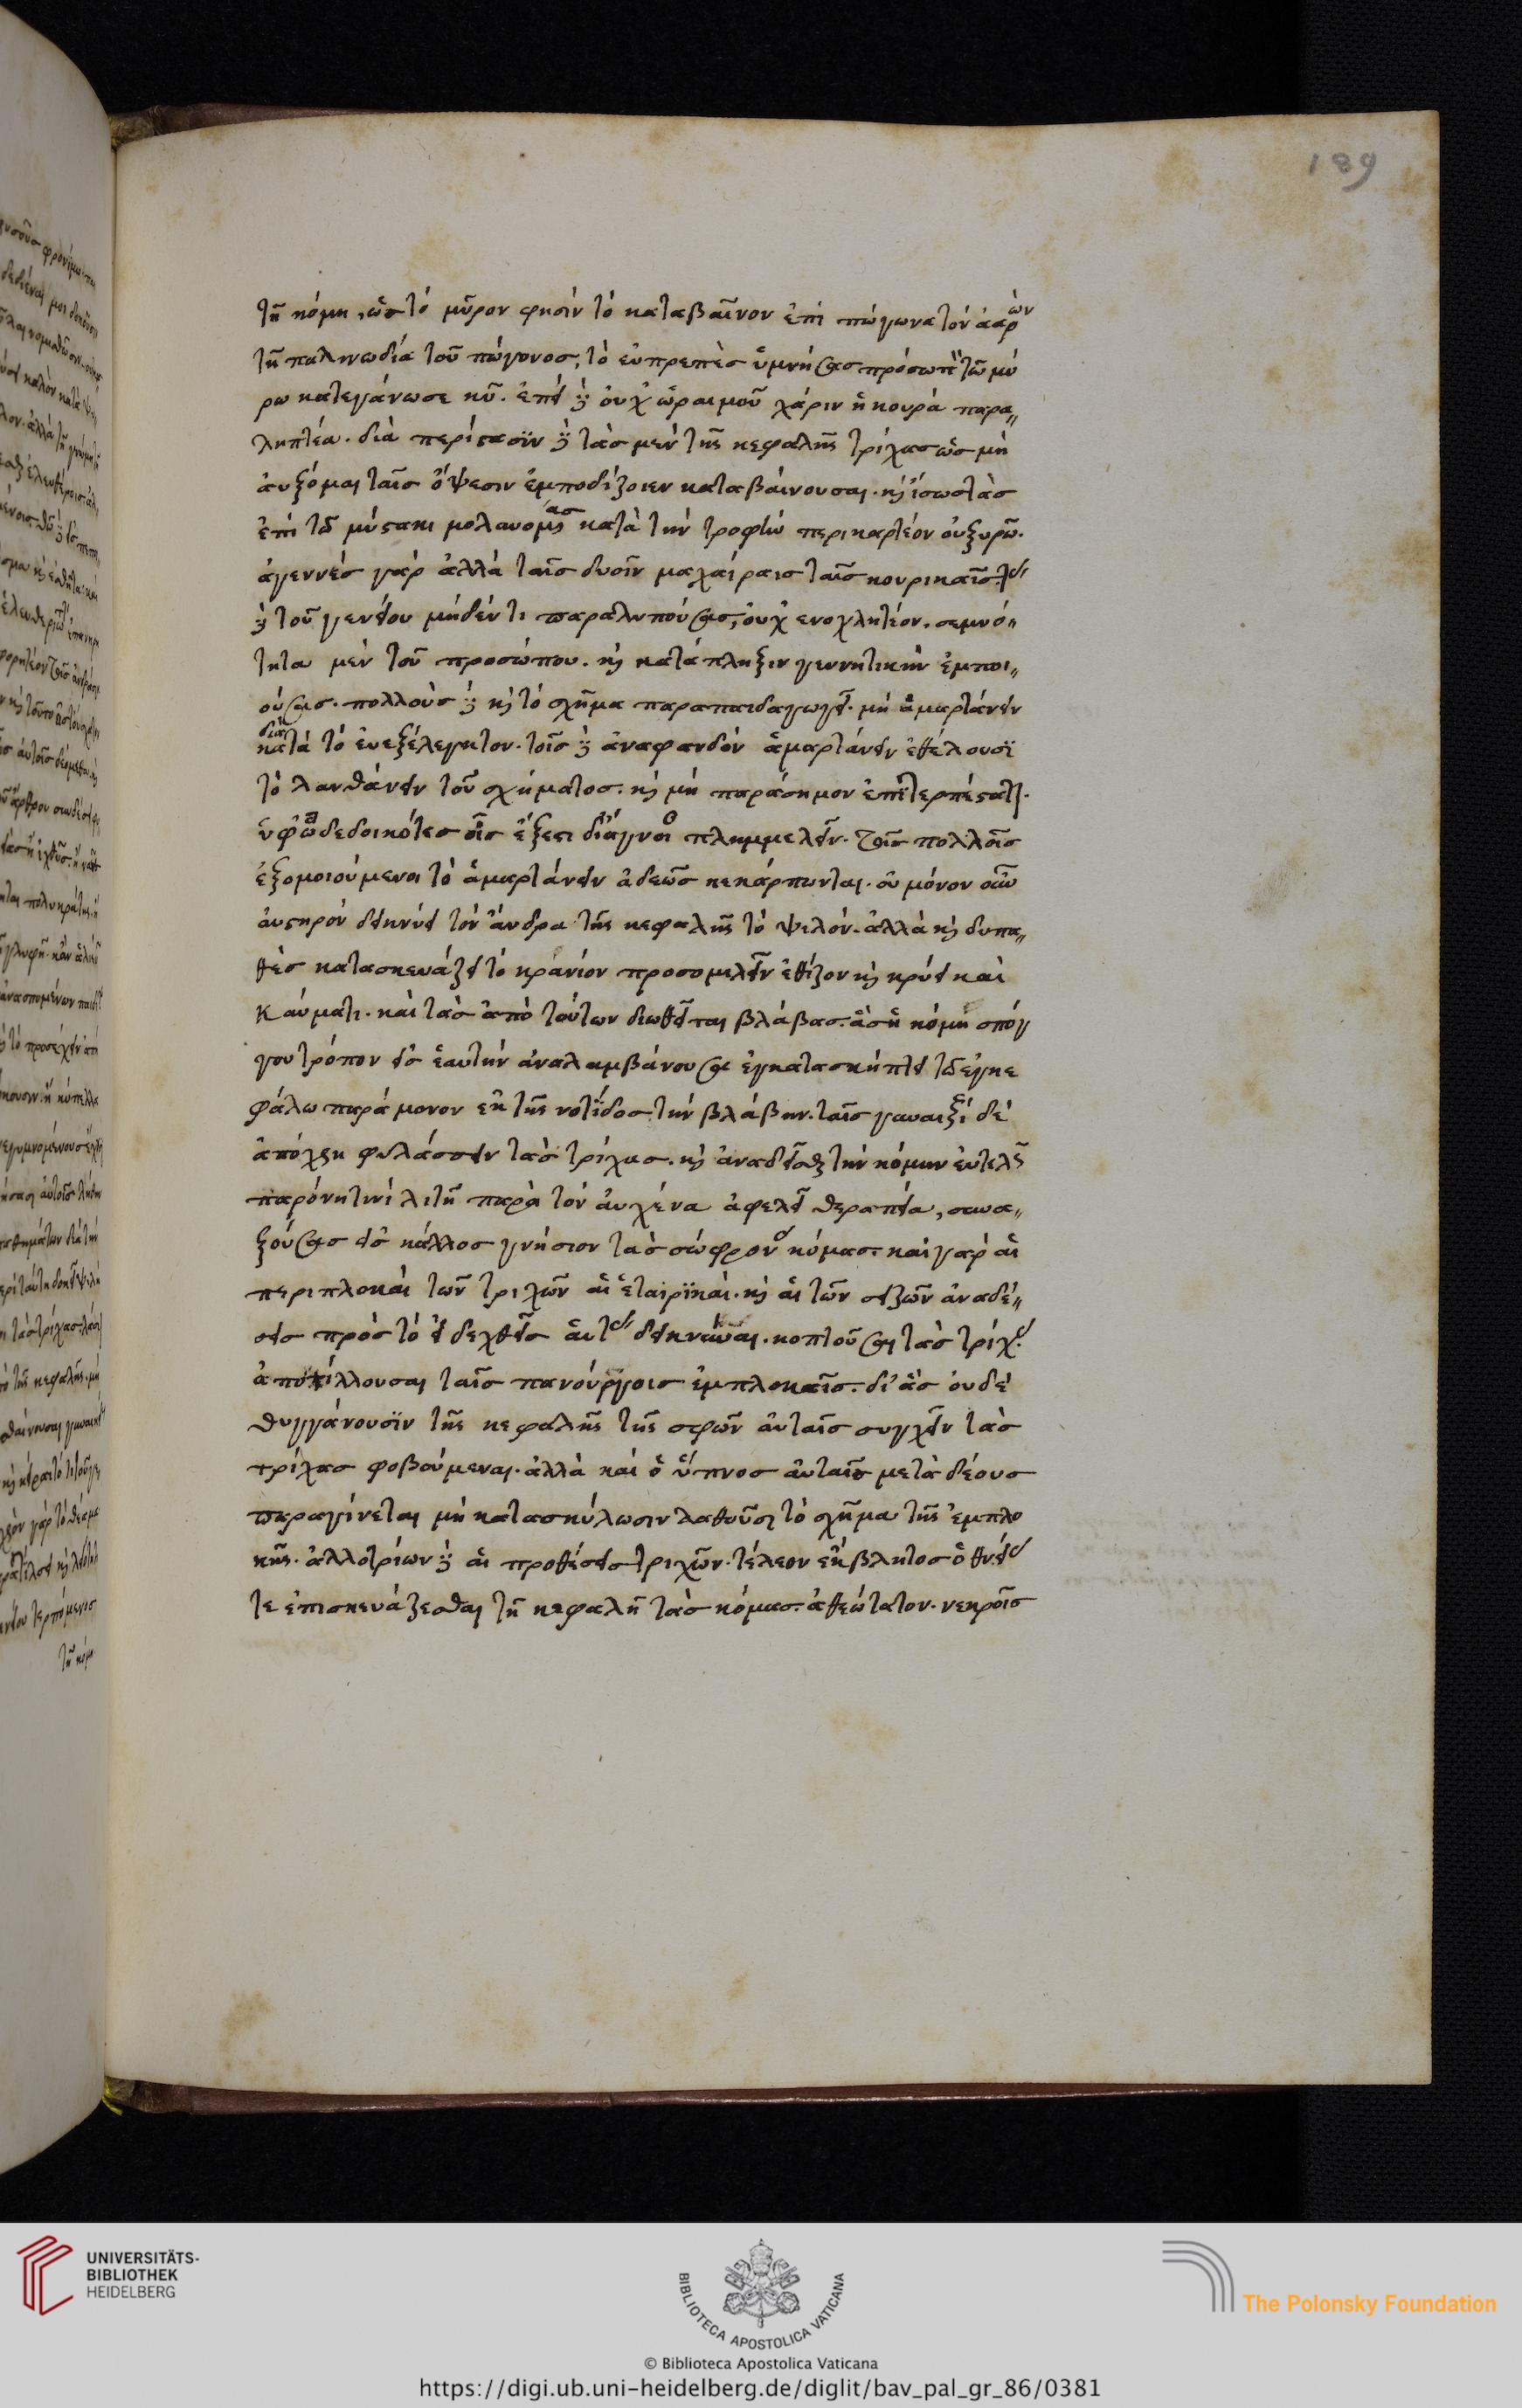 189
τῇ κόμη, ὡς τὸ μῦρον φησὶν τὸ καταβαῖνον ἐπὶ πώγωνα τὸν ἀαρών
τῇ παλινωδία τοῦ πώγωνος, τὸ εὐπρεπὲς ὑμνήσας πρόσωπον τῶ μύ
ρω κατεγάνωσε κυ. ἐπεὶ δὲ οὐχ ὡραισμοῦ χάριν ἡ κουρὰ παρα
ληπτέα. διὰ περίστασϊν δὲ τὰς μὲν τῆς κεφαλῆς τρίχας ὡς μὴ
ἀυξόμαι ταῖς ὄψεσιν ἐμποδίζοιεν καταβαίνουσαι. καὶ ἴσως τὰς
ἐπὶ τῶ μύστακι μολυνομένας κατὰ τὴν τροφὴν περικαρτέον οὐ ξυρῶ.
ἀγεννὲς γὰρ ἀλλὰ ταῖς δυοῖν μαχαίραις ταῖς κουρικαῖς. τὰς
δὲ τοῦ γενείου μηδέν τι παραλυπούσας, οὐχ ενοχλητέον. σεμνό
τητα μὲν τοῦ προσώπου. καὶ κατάπληξιν γεννητικὴν ἐμποι
ούσας. πολλοὺς δὲ καὶ τὸ σχῆμα παραπαιδαγωγεῖ. μὴ ἁμαρτάνειν
διὰ
κατὰ τὸ ἐυεξέλεγκτον. τοῖς δὲ ἀναφανδὸν ἁμαρτάνειν ἐθέλουσϊ
τὸ λανθάνειν τοῦ σχήματος. καὶ μὴ παράσημον ἐπιτερπέστατον.
ὑφ' ὧ δεδοικότες οἷς ἔξεστι διάγνοι πλημμελεῖν. τοῖς πολλοῖς
ἐξομοιούμενοι τὸ ἁμαρτάνειν ἀδεῶς κεκάρπωνται. οὐ μόνον οὖν
ἀυστηρὸν δεικνύει τὸν ἄνδρα τῆς κεφαλῆς τὸ ψιλόν. ἀλλὰ καὶ δυπα
θὲς κατασκευάζει τὸ κράνίον προσομιλεῖν ἐθίζον καὶ κρύει καὶ
καύματι. καὶ τὰς ἀπὸ τούτων διωθεῖται βλάβας. ἃς ἡ κόμη σπόγ
γου τρόπον εἰς ἑαυτὴν ἀναλαμβάνουσα ἐγκατασκήπτει τῶ ἐγκε
φάλω παράμονον ἐκ τῆς νοτΐδος τὴν βλάβην. ταῖς γυναιξὶ δὲ
ἀπόχρη φυλάσσειν τὰς τρίχας. καὶ ἀναδεῖσθαι τὴν κόμην ἐυτελῶς
παρόνη τινὶ λιτῆ παρὰ τὸν ἀυχένα ἀφελεῖ θεραπεία, συνα
ξούσας εἰς κάλλος γνήσιον τὰς σώφρονας κόμας. καὶ γὰρ αἱ
περιπλοκαὶ τῶν τριχῶν αἱ ἑταιρϊκαί. καὶ αἱ τῶν σειρῶν ἀναδέ
σεις πρὸς τὸ ἀειδεχθεῖς ἁυτὰς δεικνύναι. κοπτοῦσι τὰς τρίχας
ἀποτίλλουσαι ταῖς πανούργοις ἐμπλοκαῖς. δι' ἃς οὐδὲ
θυγγάνουσϊν τῆς κεφαλῆς τῆς σφῶν ἀυταῖς συγχεῖν τὰς
τρίχας φοβούμεναι. ἀλλὰ καὶ ὁ ὕπνος αὐταῖς μετὰ δέους
παραγίνεται μὴ κατασκύλωσιν λαθοῦσαι τὸ σχῆμα τῆς ἐμπλο
κῆς. ἀλλοτρίων δὲ αἱ προθέσεις τριχῶν. τέλεον ἐκβλητος ὀθνείας
τε ἐπισκευάζεσθαι τῆ κεφαλῆ τὰς κόμας. ἀθεώτατον. νεκροῖς
UNIVERSITÄTS-
BIBLIOTHEK
HEIDELBERG
BIBLIOTECA APOSTOLICA VATICANA
The Polonsky Foundation
© Biblioteca Apostolica Vaticana
https://digi.ub.uni-heidelberg.de/diglit/bav_pal_gr_86/0381